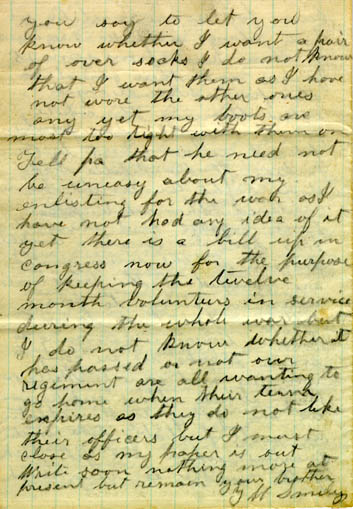 you say to let you
know whether I want a pair
of over socks I do not know
that I want them as I have
not wore the other ones
any yet my boots are
most too tight with them on
Tell pa that he need not
be uneasy about my
enlisting for the war as I
have not had any idea of it
yet there is a bill up in
congress now for the purpose
of keeping the twelve
month volunteers in service
during the whole war but
I do not know whether it
has passed or not our
regiment are all wanting to
go home when their term
expires as they do not like
their officers but I must
close as my paper is out
Write soon nothing more at
present but remain your brother